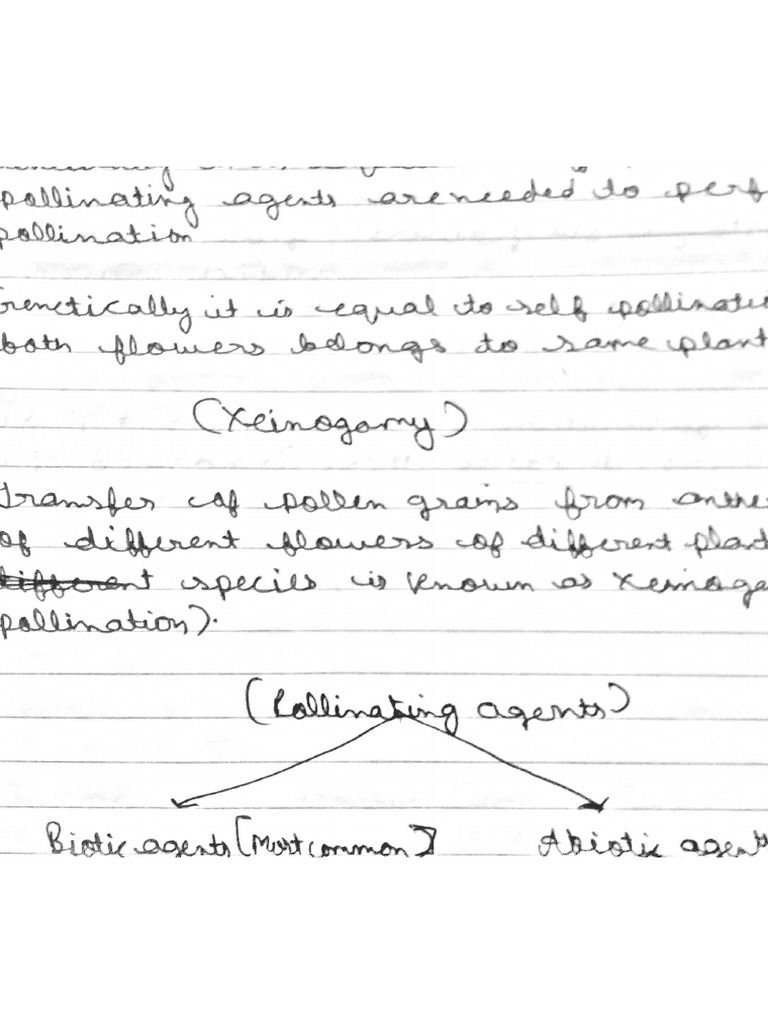 pollinating agents are needed to perf
pollination
Genetically it is equal to self pollinatio
both flowers belongs to same plant
(Xeinogamy)
Transfer of pollen grains from anthe
of different flowers of different plant
different species is known as Xeinoga
pollination).
(Pollinating agents)
Biotic agents [Most common]
Abiotic agents